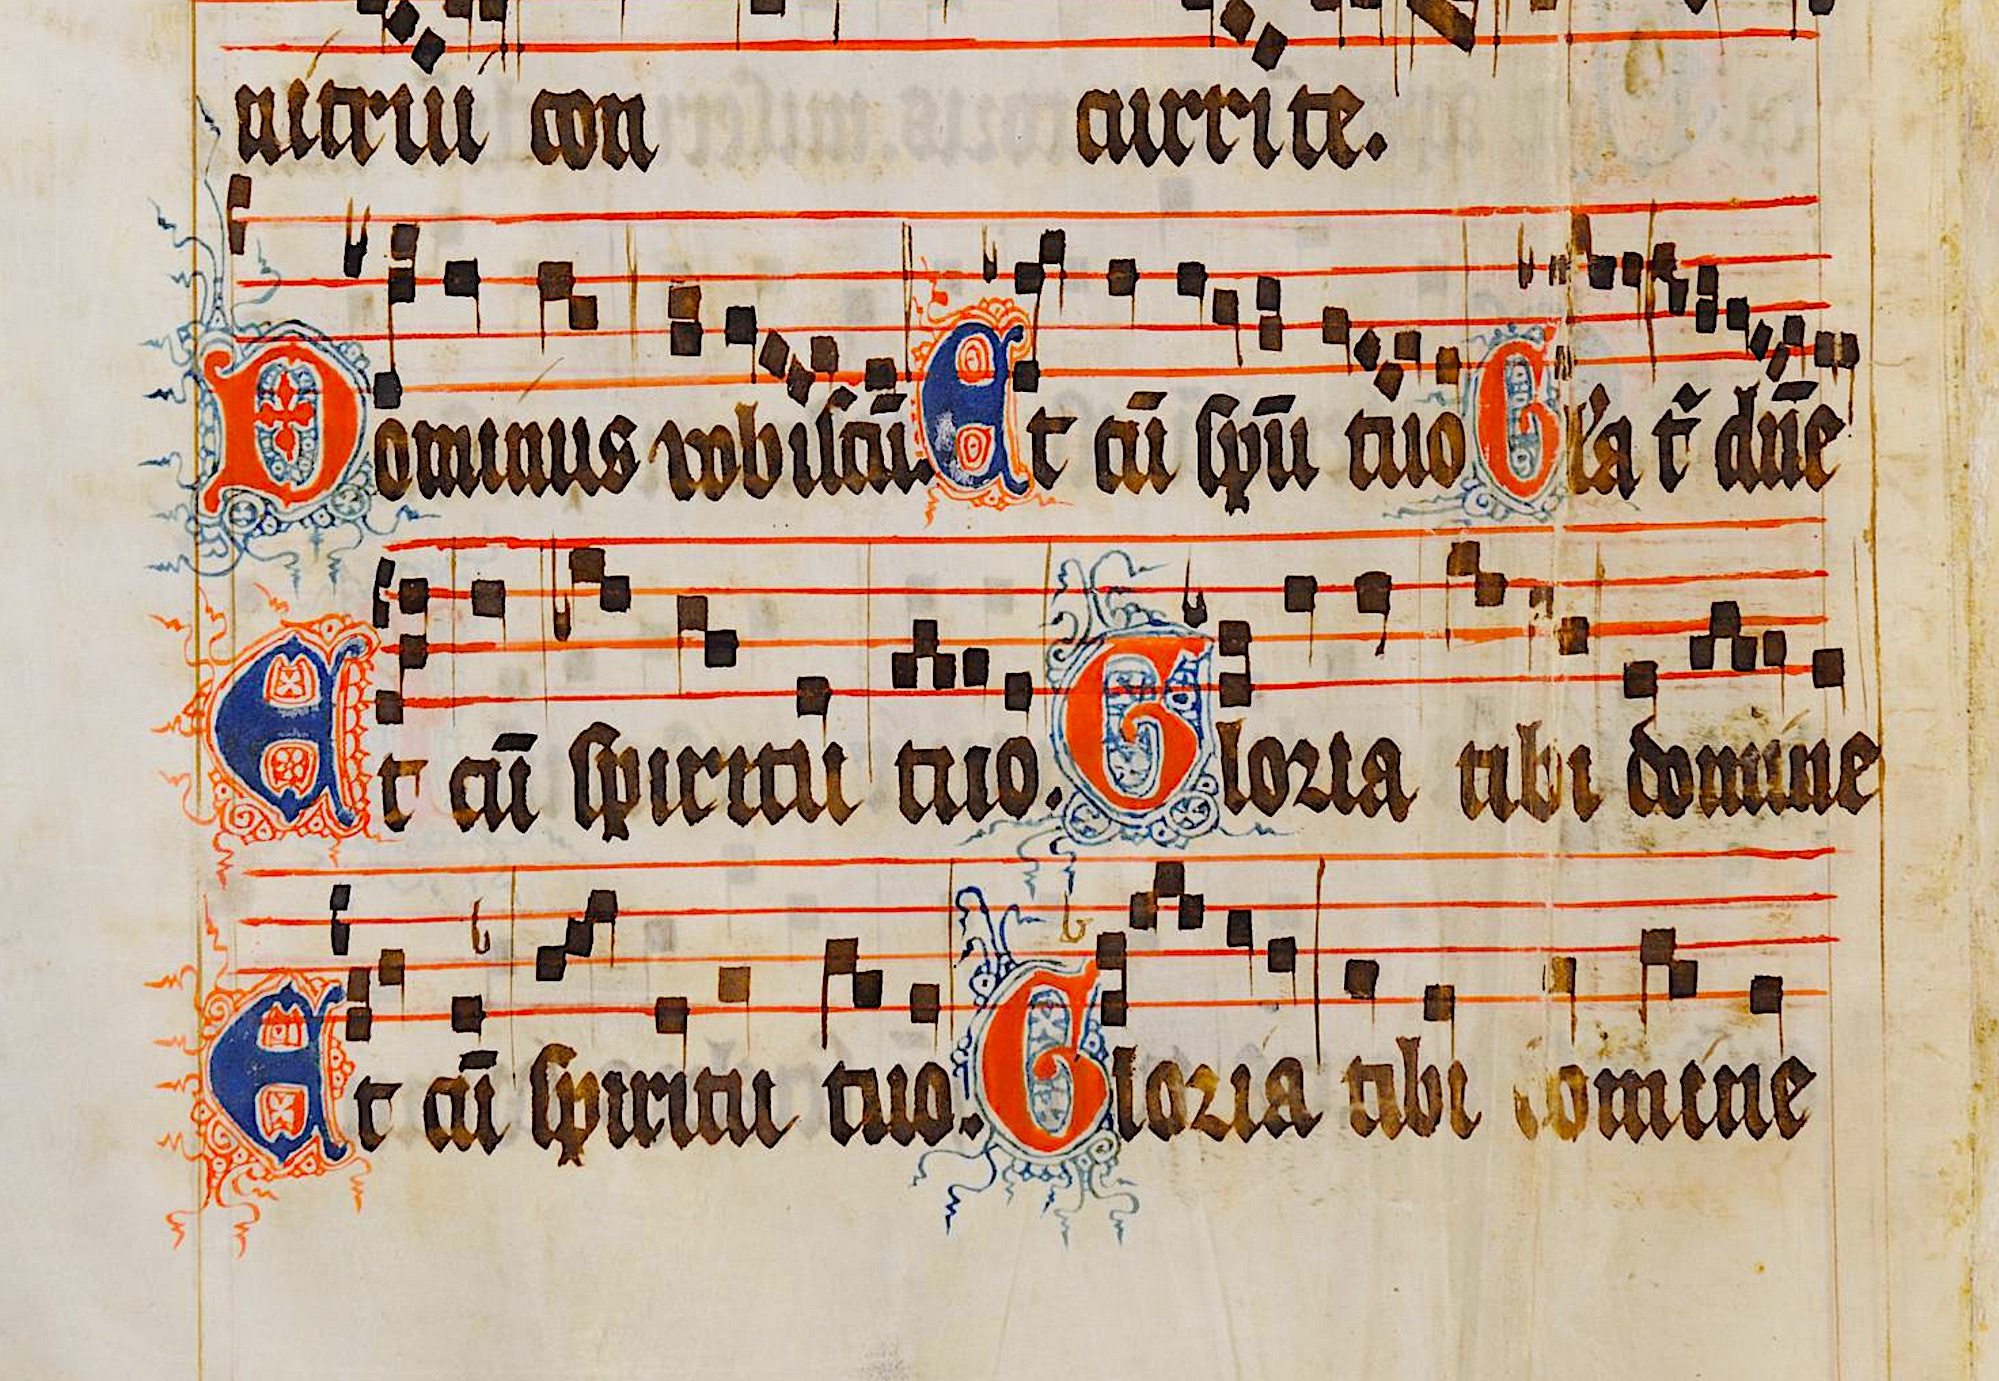 nitriu con currite.
Dominus vobiscū. Et cū spū tuo Gl'a t̄ dn̄e
Et cū spiritu tuo. Gloria tibi domine
Et cū spiritu tuo. Gloria tibi domine